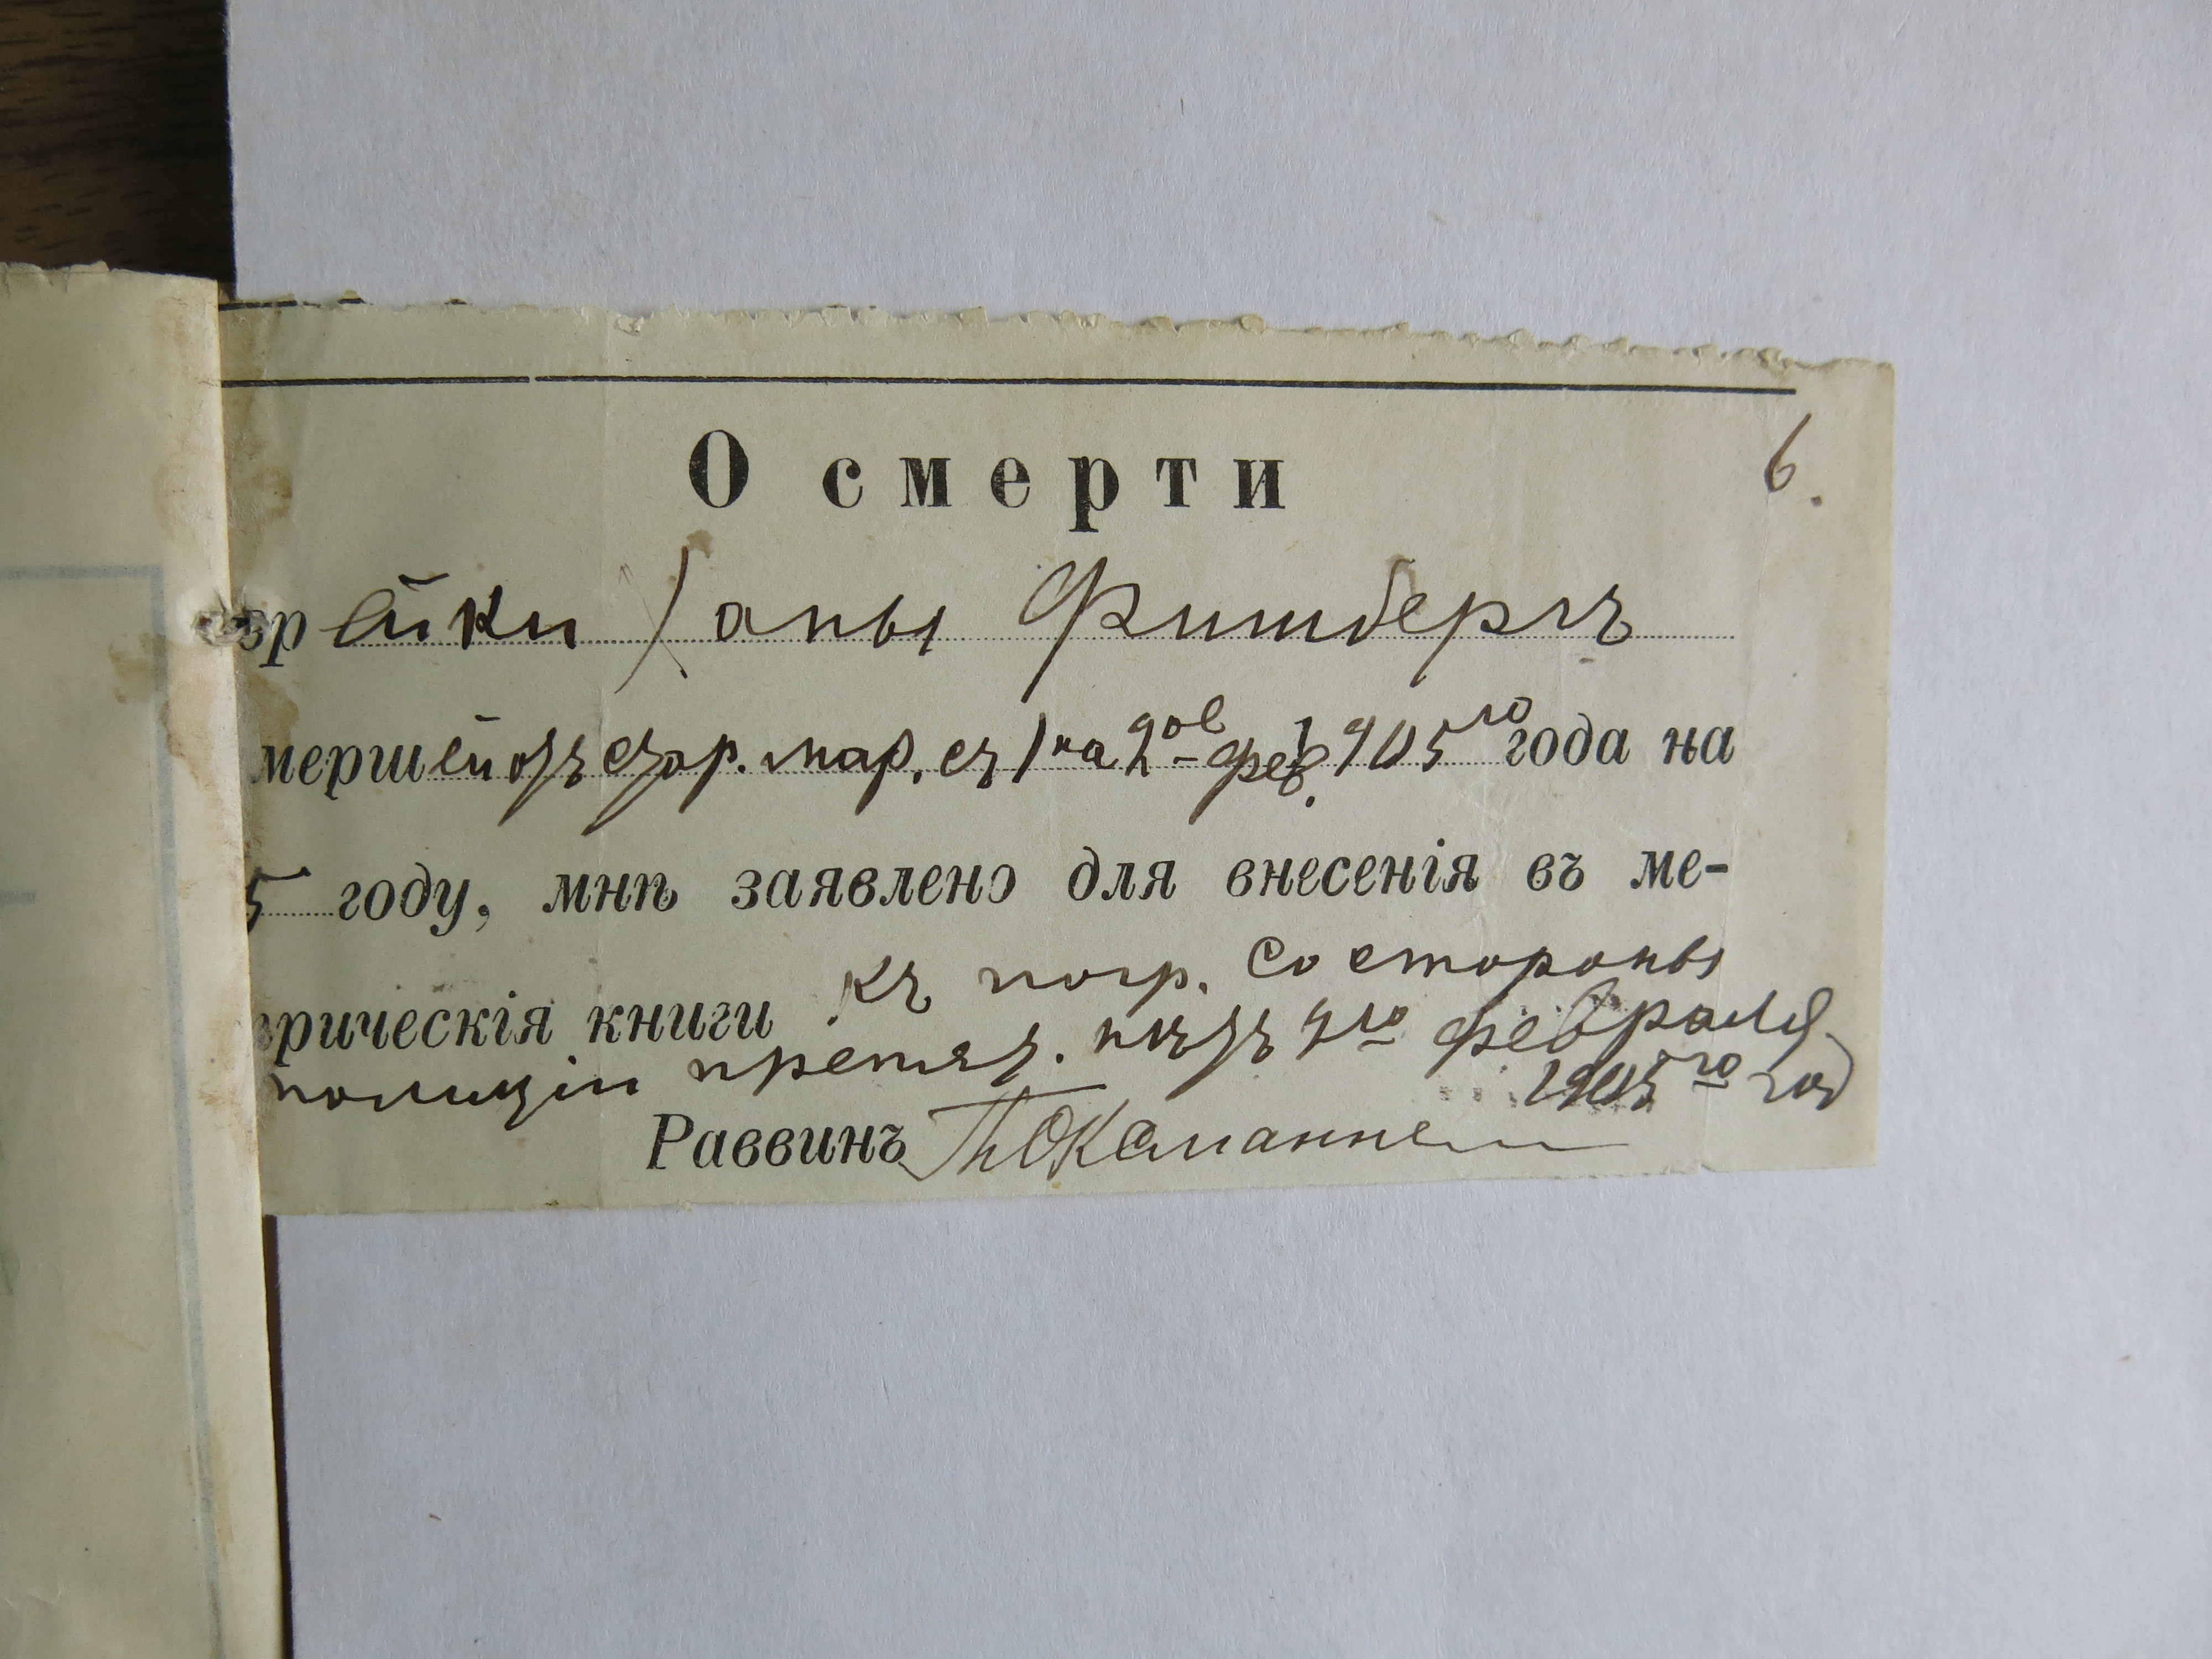 О смерти
6.
ейки Ханы Фишбергъ
мершей отъ скар. мар. съ 1 на 2ое фев. 1905го года на
5 году, мнѣ заявлено для внесенія въ ме-
рическія книги къ погр. Со стороны
полиціи препят. нѣтъ 4го февраля
1905го год
Раввинъ